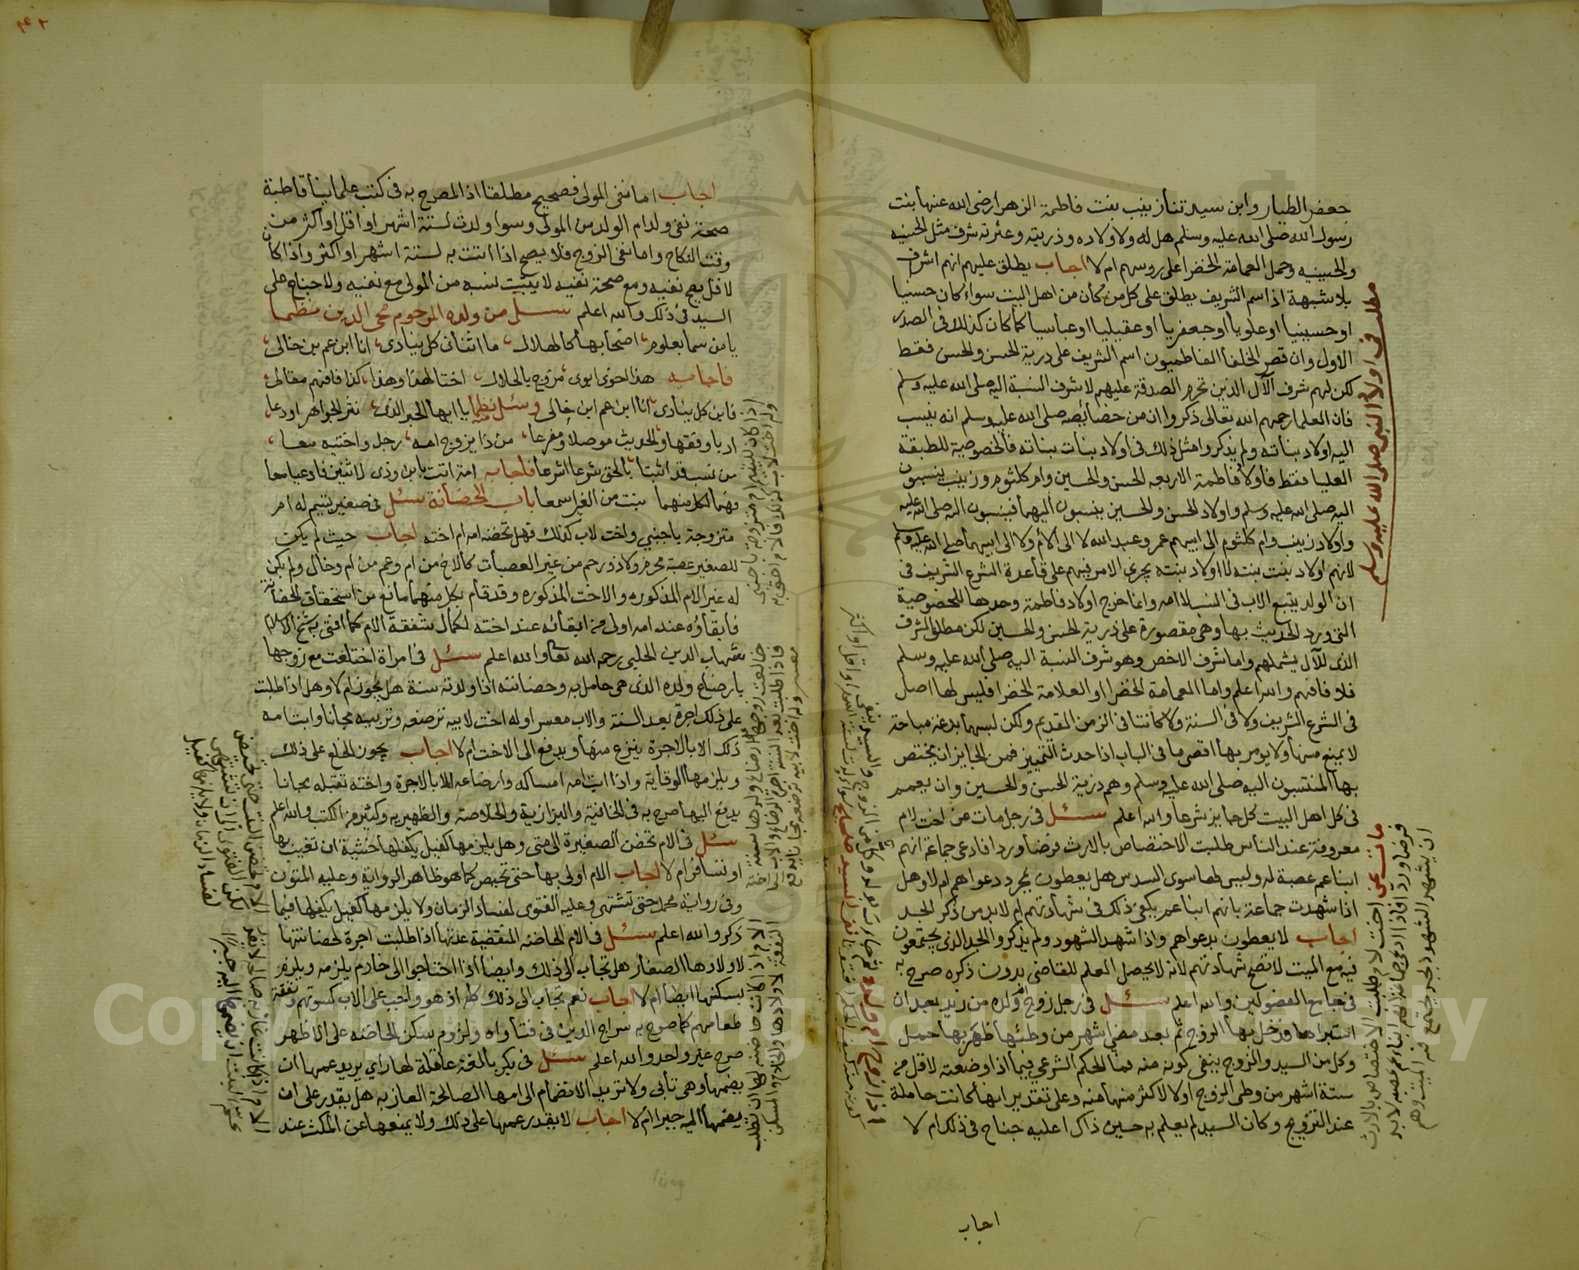 جعفر الطيار وابن سيدتنا زينب بنت فاطمة الزهرا رضى الله عنها بنت
رسول الله صلى الله عليه وسلم هل له ولاولاده وذريته وعترته شرف مثل الحسنيه
والحسينيه وحمل العمامة الخضرا على روسهم ام لا اجاب يطلق عليهم انهم اشراف
بلا شبهة اذ اسم الشريف يطلق على كل من كان من اهل البيت سواء كان حسنيا
او حسينيا او علويا او جعفريا او عقيليا او عباسيا كما كان كذلك فى الصدر
الاول وان قصر الخلفا الفاطميون اسم الشريف على ذرية الحسن والحسين فقط
لكن لهم شرف الآل الذين تحرم الصدقة عليهم لا شرف النسبة اليه صلى الله عليه وسلم
فان العلما رحمهم الله تعالى ذكروا ان من خصائصه صلى الله عليه وسلم انه ينسب
اليه اولاد بناته ولم يذكروا مثل ذلك فى اولاد بنات بناته فالخصوصية للطبقة
العليا فقط فاولاد فاطمة الاربعه الحسن والحسين وام كلثوم وزينب ينسبون
اليه صلى الله عليه وسلم واولاد الحسن والحسين ينسبون اليهما فينسبون اليه صلى الله عليه
واولاد زينب وام كلثوم الى ابيهم عمر وعبد الله لا الى الام ولا الى ابيهما صلى الله عليه وسلم
لانهم اولاد بنت بنته لا اولاد بنته يجرى الامر فيهم على قاعدة الشرع الشريف فى
ان الولد يتبع الاب فى النسب لا امه وانما خرج اولاد فاطمة وحدها للخصوصية
التى ورد الحديث بها وهى مقصورة على ذرية الحسن والحسين لكن مطلق الشرف
الذى للآل يشملهم واما شرف الاخص وهو شرف النسبة اليه صلى الله عليه وسلم
فلا فافهم والله اعلم واما العمامة الخضرا والعلامة الخضرا فليس لها اصل
فى الشرع الشريف ولا فى السنة ولا كانت فى الزمن القديم ولكن لبسها بدعة مباحة
لا يمنع منها ولا يومر بها اقصى ما فى الباب اذا حدث التمييز فمن الجايز ان يختص
بها المنتسبون اليه صلى الله عليه وسلم وهم ذرية الحسن والحسين وان يعمم
فى كل اهل البيت كل جايز شرعا والله اعلم سئل فى رجل مات عن اخت لام
معروفة عند الناس طلبت الاختصاص بالارث فرضا وردا فادعى جماعة انهم
ابنا عم عصبة له وليس لها سوى السدس هل يعطون بمجرد دعواهم ام لا وهل
اذا شهدت جماعة بانهم ابنا عم يكفى ذلك فى شهادتهم ام لا بد من ذكر الجد
اجاب لا يعطون بدعواهم واذا شهد الشهود ولم يذكروا الجد الذى يجتمعون
فيه مع الميت لا تصح شهادتهم لانه لا يحصل العلم للقاضى بدون ذكره صرح به
فى جامع الفصولين والله اعلم سئل فى رجل زوج ام ولده من زيد بعد ان
استبراها ودخل بها الزوج ثم بعد مضى شهر من وطئها ظهر بها حمل
وكل من السيد والزوج ينفى كونه منه فما الحكم الشرعى فيما اذا وضعته لاقل من
ستة اشهر من وطى الزوج او لا لاكثر منها منه وعلى تقدير انها كانت حاملة
عند التزوج وكان السيد لم يعلم به حين ذاك ا عليه جناح فى ذلك ام لا
اجاب
مطلب فى اولاد النبى صلى الله عليه وسلم
مات عن اخت لام طلبت الاختصاص بالارث
اجاب اما نفى المولى فصحيح مطلقا اذ المصرح به فى كتب علماينا قاطبة
صحة نفى ولد ام الولد من المولى وسوا ولدت لستة اشهر او اقل او اكثر من
وقت النكاح واما نفى الزوج فلا يصح اذا اتت به لستة اشهر او اكثر واذا كان
لاقل يصح نفيه ومع صحة نفيه لا يثبت نسبه من المولى مع نفيه ولا جناح على
السيد فى ذلك والله اعلم سئل من ولده المرحوم محى الدين نظما
يا من سما بعلومه اضحى بها كالهلال ما انت ان كل ينادى انا ابن عم بن خالى
فاجابه هذا اخوى ابوى مزوج بالحلال اختا لهذا وهذا كذا فافهم مقالى
فابن كل ينادى انا ابن عم ابن خالى وسئل نظما يا ايها الحبر الذى نثر الجواهر اودعا
من نسب قد اثبتا بالحق شرعا اشرعا فاجاب امة اتت بابن وذى لاثنين فادعياه معا
ولهما لكل منهما بنت من الغير اسمعا باب الحضانة سئل فى صغير يتيم له ام
متزوجة باجنبى واخت لاب كذلك فهل تحضنه امه ام اخته اجاب حيث لم يكن
للصغير عصبة محرم ولا ذو رحم من غير العصبات كالاخ من ام وعم من ام وخال ولم يكن
له غير الام المذكوره والاخت المذكوره وقد قام بكل منهما مانع من استحقاق الحضانة
فابقاؤه عند امه اولى من ابقائه عند اخته لكمال شفقة الام كما افتى به شيخ الاسلام
شهاب الدين الحلبى رحمه الله تعالى والله اعلم سئل فى امراة اختلعت مع زوجها
بارضاع ولده الذى هى حامل به وحضانته اذا ولدته سنة هل يجوز ام لا وهل اذا طلبت
على ذلك اجرة بعد السنة والاب معسر وله اخت لابيه ترضعه وتربيه مجانا وابت امه
ذلك الا بالاجرة ينزع منها ويدفع الى الاخت ام لا اجاب يجوز الخلع على ذلك
ويلزمها الوفا به واذا ابت امه امساكه وارضاعه الا بالاجرة واخته تقبله مجانا
يدفع اليها صرح به فى الخانية والبزازية والخلاصة والظهيريه وكثير من الكتب والله اعلم
سئل فى الام تحضن الصغيرة الى متى وهل يلزمها كفيل يكفلها خشية ان تغيب بها
او تسافر ام لا اجاب الام اولى بها حتى تحيض كما هو ظاهر الرواية وعليه المتون
وفى رواية محمد حتى تشتهى وعليه الفتوى لفساد الزمان ولا يلزمها كفيل يكفلها فيما
ذكر والله اعلم سئل فى الام الحاضنه المنقضية عدتها اذا طلبت اجرة لحضانتها
لاولادها الصغار هل تجاب الى ذلك وايضا اذا احتاجوا الى خادم يلزمه ويلزم
بسكنها ايضا ام لا اجاب نعم تجاب الى ذلك كله اذ هو واجب على الاب كسوتهم ونفقة
طعامهم كما صرح به سراج الدين فى فتاواه ولزوم سكن الحاضنه على الاظهر
صرح غير واحد والله اعلم سئل فى بكر بالغة عاقلة لها راي يريد عمها ان
يضمها وهى تأبى ولا تريد الانضمام الى امها الصالحة العازبه هل يقدر على ان
يضمها اليه جبرا ام لا اجاب لا يقدر عمها على ذلك ولا يمنعها عن المكث عند
Copyright © King Saud University